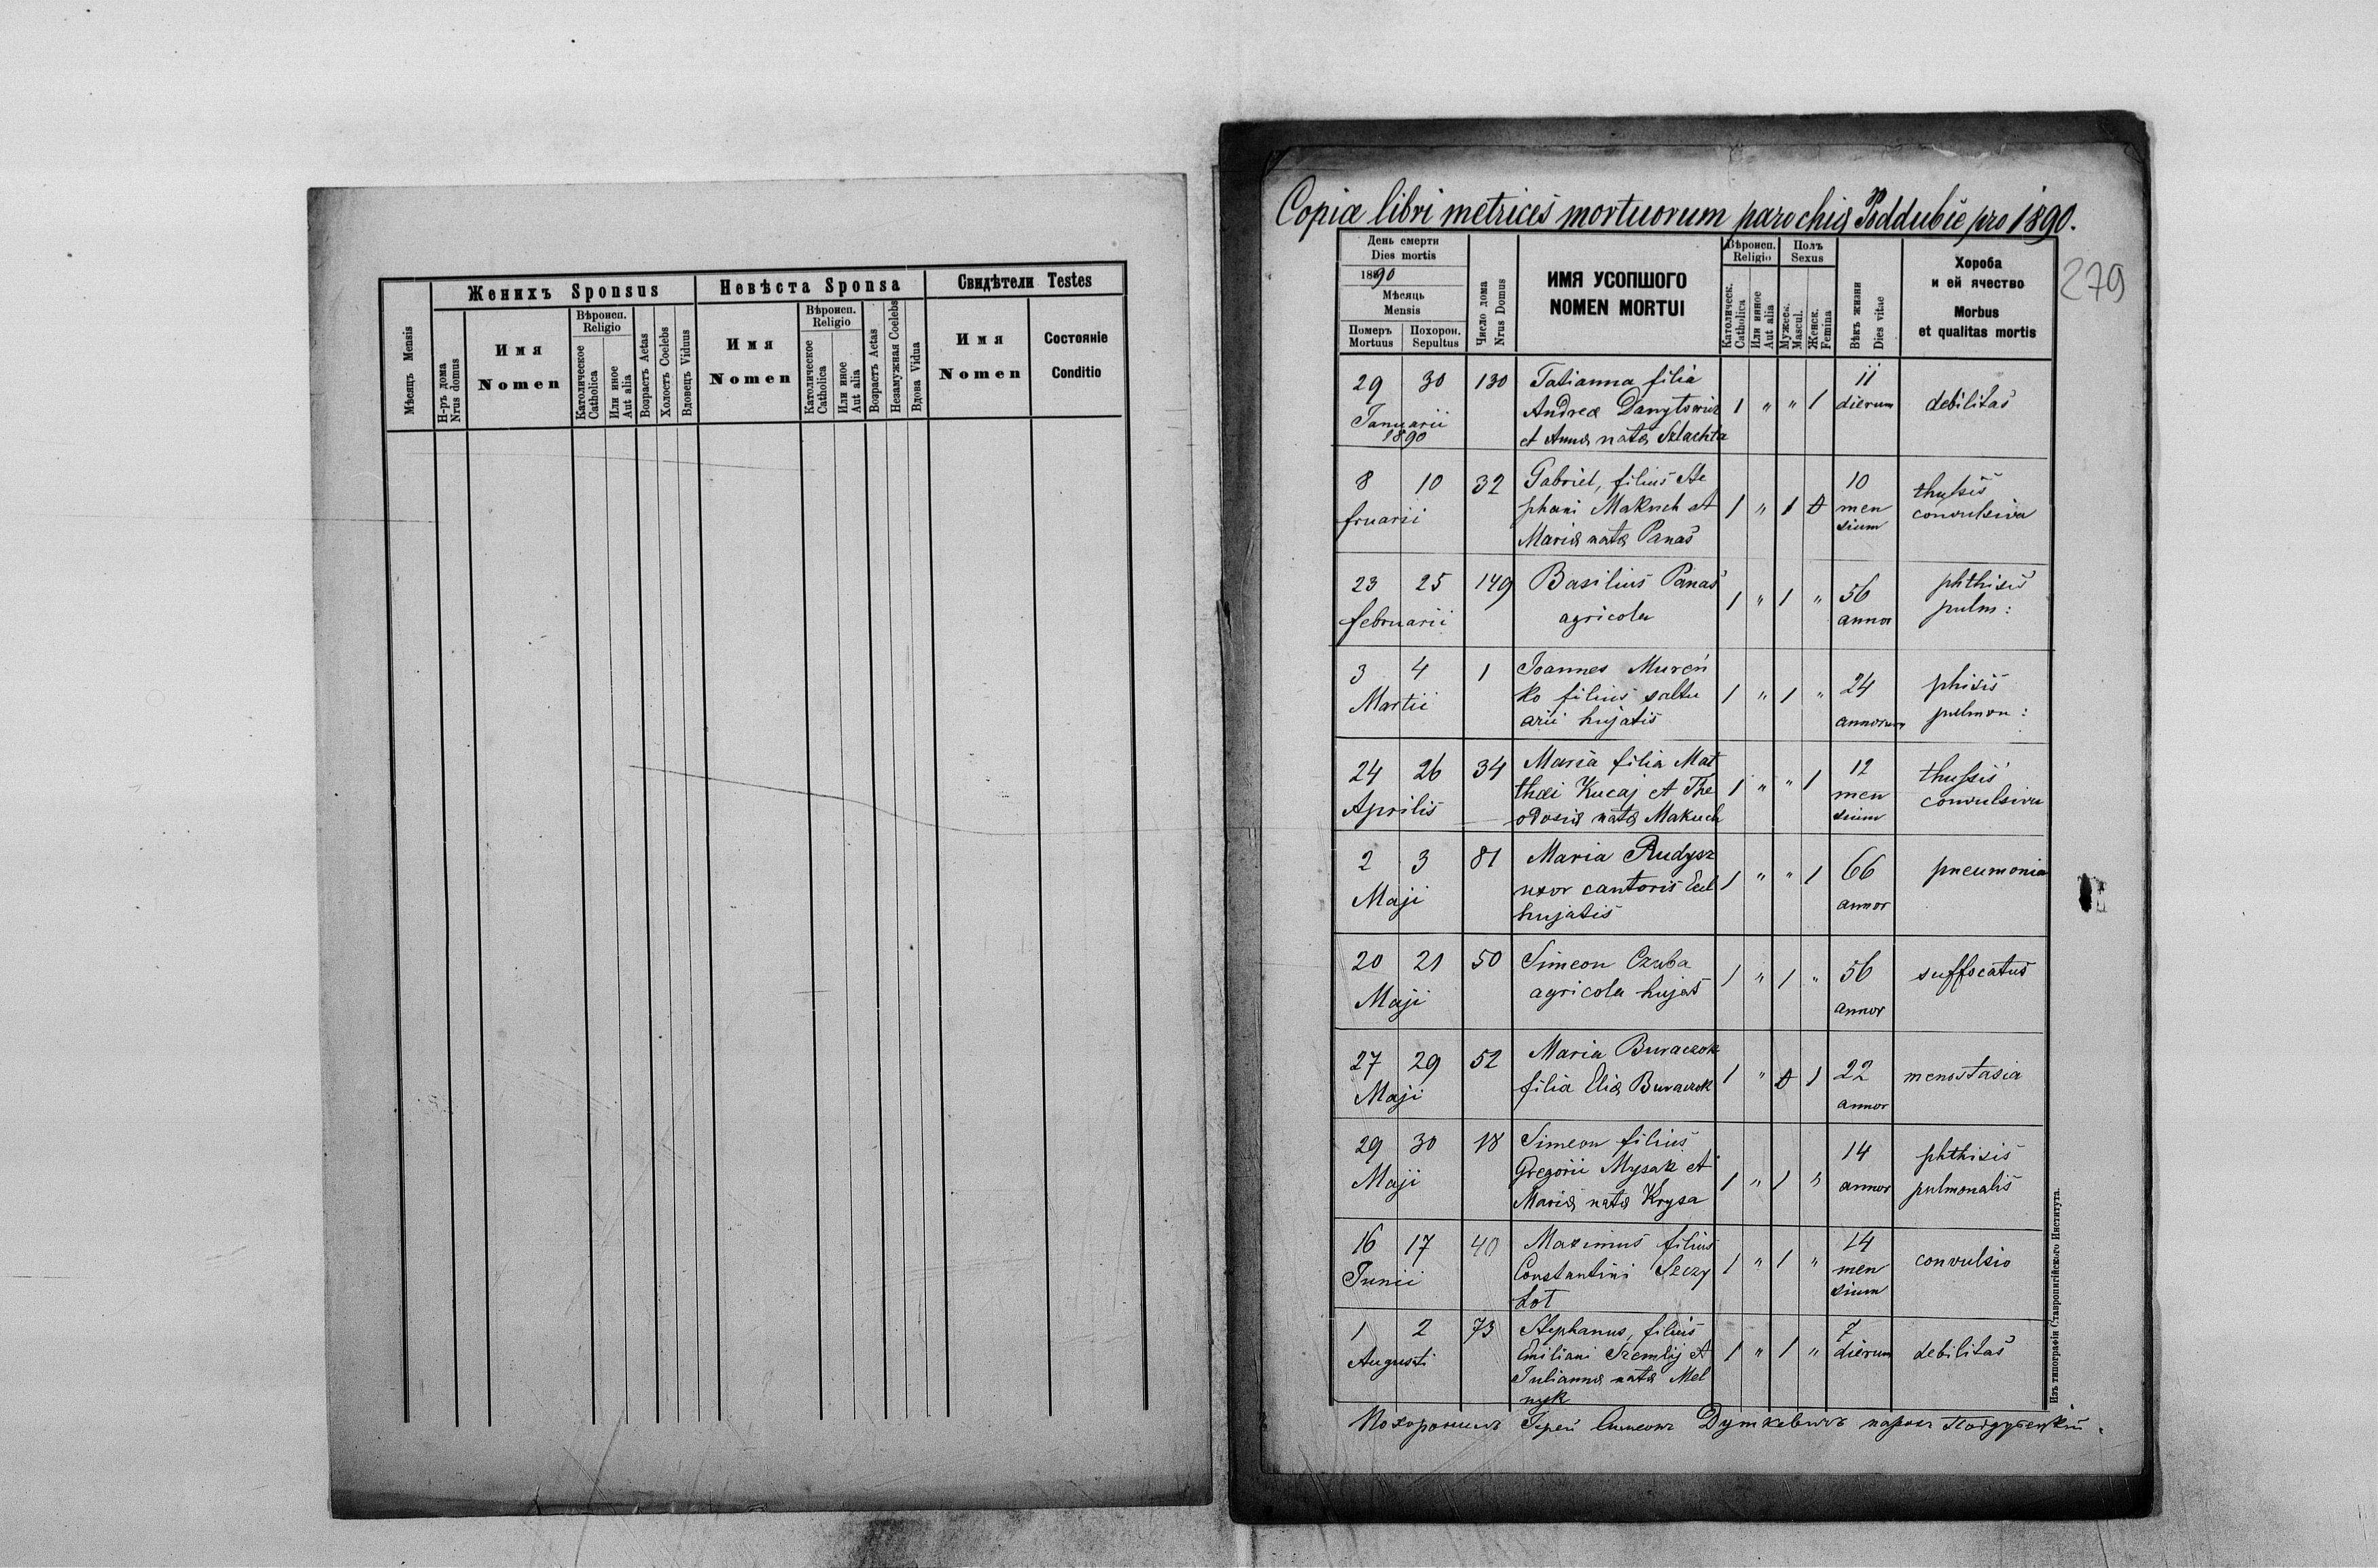 Женихъ Sponsus
Невѣста Sponsa
Свидѣтели Testes
Мѣсяцъ Mensis
Н-ръ дома
Nrus domus
Имя
Nomen
Вѣроисп.
Religio
Католическое
Catholica
Или иное
Aut alia
Возрастъ Aetas
Холостъ Coelebs
Вдовецъ Viduus
Имя
Nomen
Вѣроисп.
Religio
Католическое
Catholica
Или иное
Aut alia
Возрастъ Aetas
Незамужная Coelebs
Вдова Vidua
Имя
Nomen
Состояніе
Conditio
Copia libri metrices mortuorum parochiæ Poddubie pro 1890.
279
День смерти
Dies mortis
1890
Мѣсяць
Mensis
Померъ
Mortuus
Похорон.
Sepultus
Число дома
Nrus Domus
ИМЯ УСОПШОГО
NOMEN MORTUI
Вѣроисп.
Religio
Католическ.
Catholica
Или инное
Aut alia
Полъ
Sexus
Мужеск.
Mascul.
Женск.
Femina
Вѣкъ жизни
Dies vitae
Хороба
и ей ячество
Morbus
et qualitas mortis
29 30 130 Tatianna filia 11
Januarii Andreæ Danyłowicz 1 " " 1 dierum debilitas
1890 et Annæ natæ Szlachta
8 10 32 Gabriel, filius Ste 10 thussis
fruarii phani Makuch et 1 " 1 men convulsiva
Mariæ natæ Panas sium
23 25 149 Basilius Panas 1 " 1 " 56 phthisis
februarii agricola annor pulm:
3 4 1 Joannes Mureń
Martii ko filius saltu 1 " 1 " 24 phisis
arii hujatis annorum pulmon:
24 26 34 Maria filia Mat 12 thussis
Aprilis thæi Kucaj et The 1 " " 1 men convulsiva
odosiæ natæ Makuch sium
2 3 81 Maria Rudysz 66 pneumonia
Maji uxor cantoris Eccl 1 " " 1 annor
hujatis
20 21 50 Simeon Czuba 1 " 1 " 56 suffocatus
Maji agricola hujas annor
27 29 52 Maria Buraczok
Maji filia Eliæ Buraczok 1 " 1 22 menostasia
annor
29 30 18 Simeon filius 14 phthisis
Maji Gregorii Mysak et 1 " 1 " annor pulmonalis
Mariæ natæ Krysa
16 17 40 Maximus filius 14
Junii Constantini Szczy 1 " 1 " men convulsio
sium
1 2 73 Stephanus, filius 7
Augusti Emiliani Szemlij et 1 " 1 " dierum debilitas
Julianna natæ Mel
nyk
Похоронилъ Іерей Симеонъ Дуткевичъ парохъ Поддубецкій.
Изъ типографіи Ставропигійского Института.